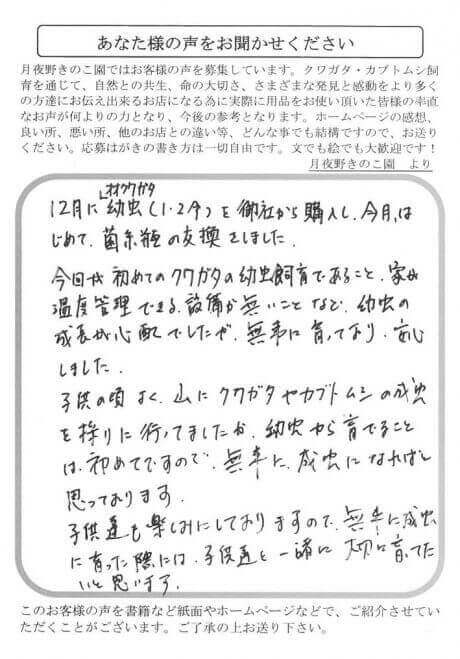 あなた様の声をお聞かせください
月夜野きのこ園ではお客様の声を募集しています。クワガタ・カブトムシ飼
育を通じて、自然との共生、命の大切さ、さまざまな発見と感動をより多く
の方達にお伝え出来るお店になる為に実際に用品をお使い頂いた皆様の率直
なお声が何よりの力となり、今後の参考となります。ホームページの感想、
良い所、悪い所、他のお店との違い等、どんな事でも結構ですので、お送り
ください。応募はがきの書き方は一切自由です。文でも絵でも大歓迎です！
月夜野きのこ園　より
オオクワガタ
12月に幼虫(1・2令)を御社から購入し、今月、は
じめて、菌糸瓶の交換をしました。
今回が初めてのクワガタの幼虫飼育であること、家が
温度管理できる、設備が無いことなど、幼虫の
成長が心配でしたが、無事に育っており、安心
しました。
子供の頃よく、山にクワガタやカブトムシの成虫
を採りに行ってましたが、幼虫から育てること
は、初めてですので、無事に、成虫になればと
思っております。
子供達も楽しみにしておりますので、無事に成虫
に育った際には、子供達と一緒に大切に育てた
いと思います。
このお客様の声を書籍など紙面やホームページなどで、ご紹介させてい
ただくことがございます。ご了承の上お送り下さい。